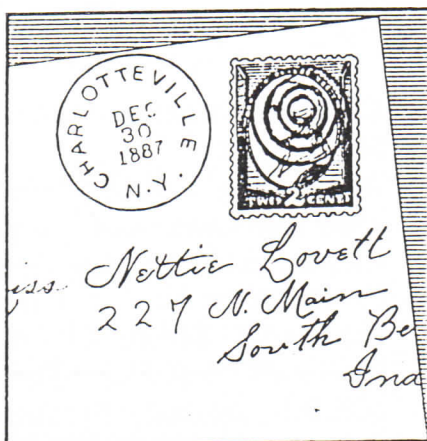 CHARLOTTEVILLE
N.Y.
DEC
30
1887
TWO 2 CENTS
iss Nettie Lovett
227 N. Main
South Be
Ind